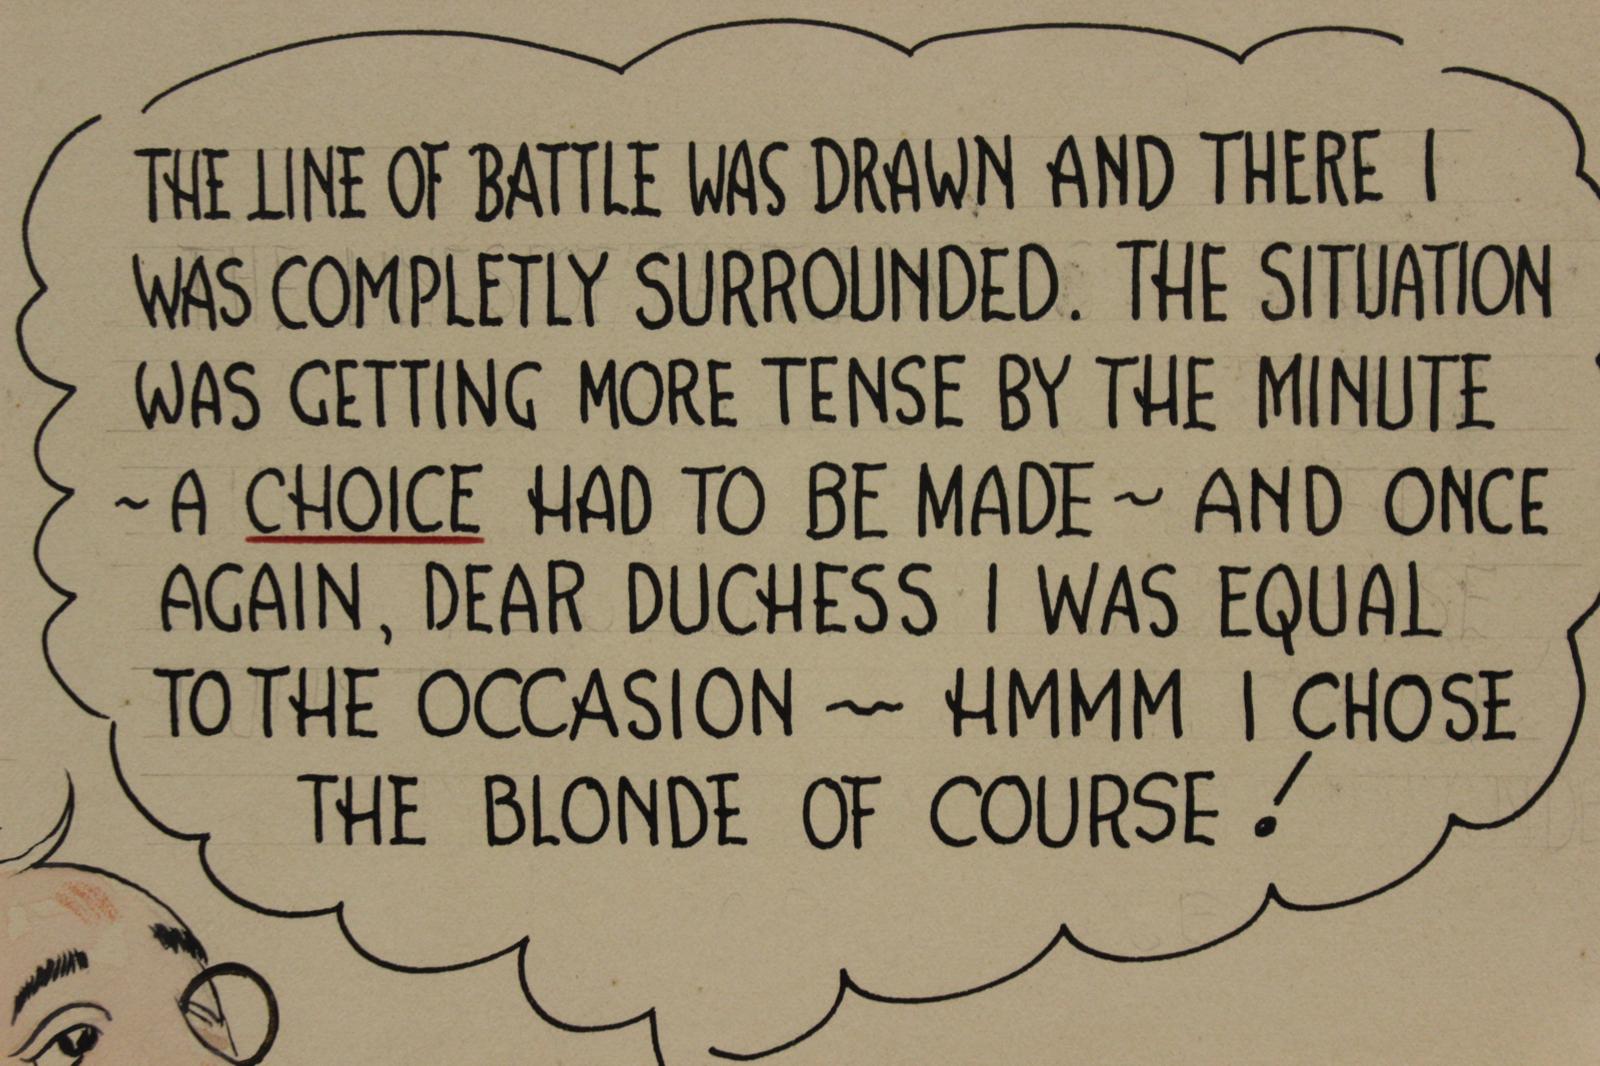 THE LINE OF BATTLE WAS DRAWN AND THERE I
WAS COMPLETLY SURROUNDED. THE SITUATION
WAS GETTING MORE TENSE BY THE MINUTE
~ A CHOICE HAD TO BE MADE ~ AND ONCE
AGAIN, DEAR DUCHESS I WAS EQUAL
TO THE OCCASION ~~ HMMM I CHOSE
THE BLONDE OF COURSE!